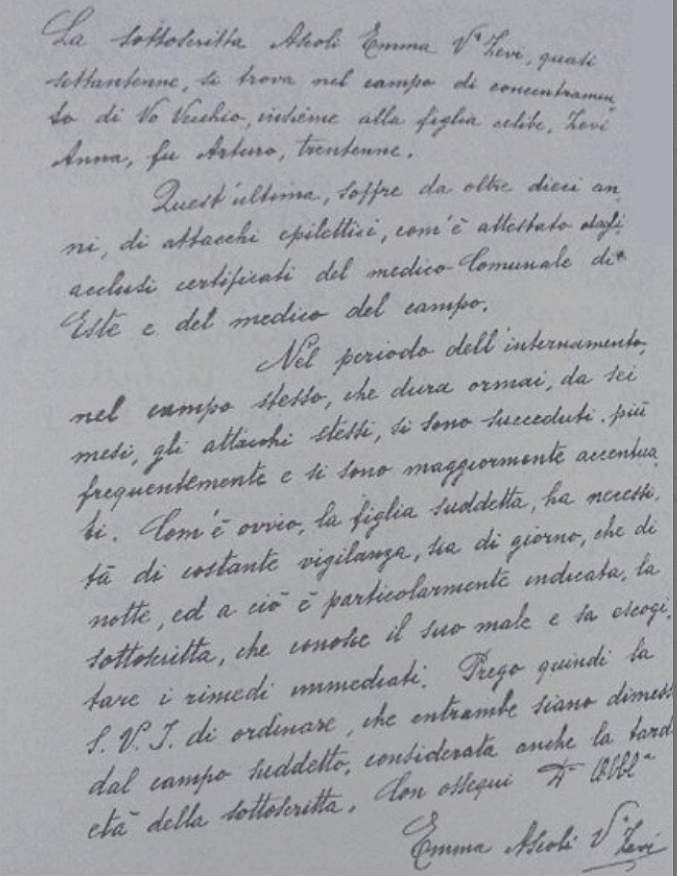 La sottoscritta Ascoli Emma Vª Zevi, quasi
settantenne, si trova nel campo di concentramen
to di Vo Vecchio, insieme alla figlia celibe, Zevi
Anna, fu Arturo, trentenne.
Quest'ultima, soffre da oltre dieci an
ni, di attacchi epilettici, com'è attestato dagli
acclusi certificati del medico Comunale di
Este e del medico del campo.
Nel periodo dell'internamento,
nel campo stesso, che dura ormai, da sei
mesi, gli attacchi stessi, si sono succeduti più
frequentemente e si sono maggiormente accentua
ti. Com'è ovvio, la figlia suddetta, ha necessi
tà di costante vigilanza, sia di giorno, che di
notte, ed a ciò è particolarmente indicata, la
sottoscritta, che conosce il suo male e sa escogi
tare i rimedi immediati. Prego quindi la
S. V. I. di ordinare, che entrambe siano dimess
dal campo suddetto, considerata anche la tard
età della sottoscritta. Con ossequi
Emma Ascoli Vª Zevi